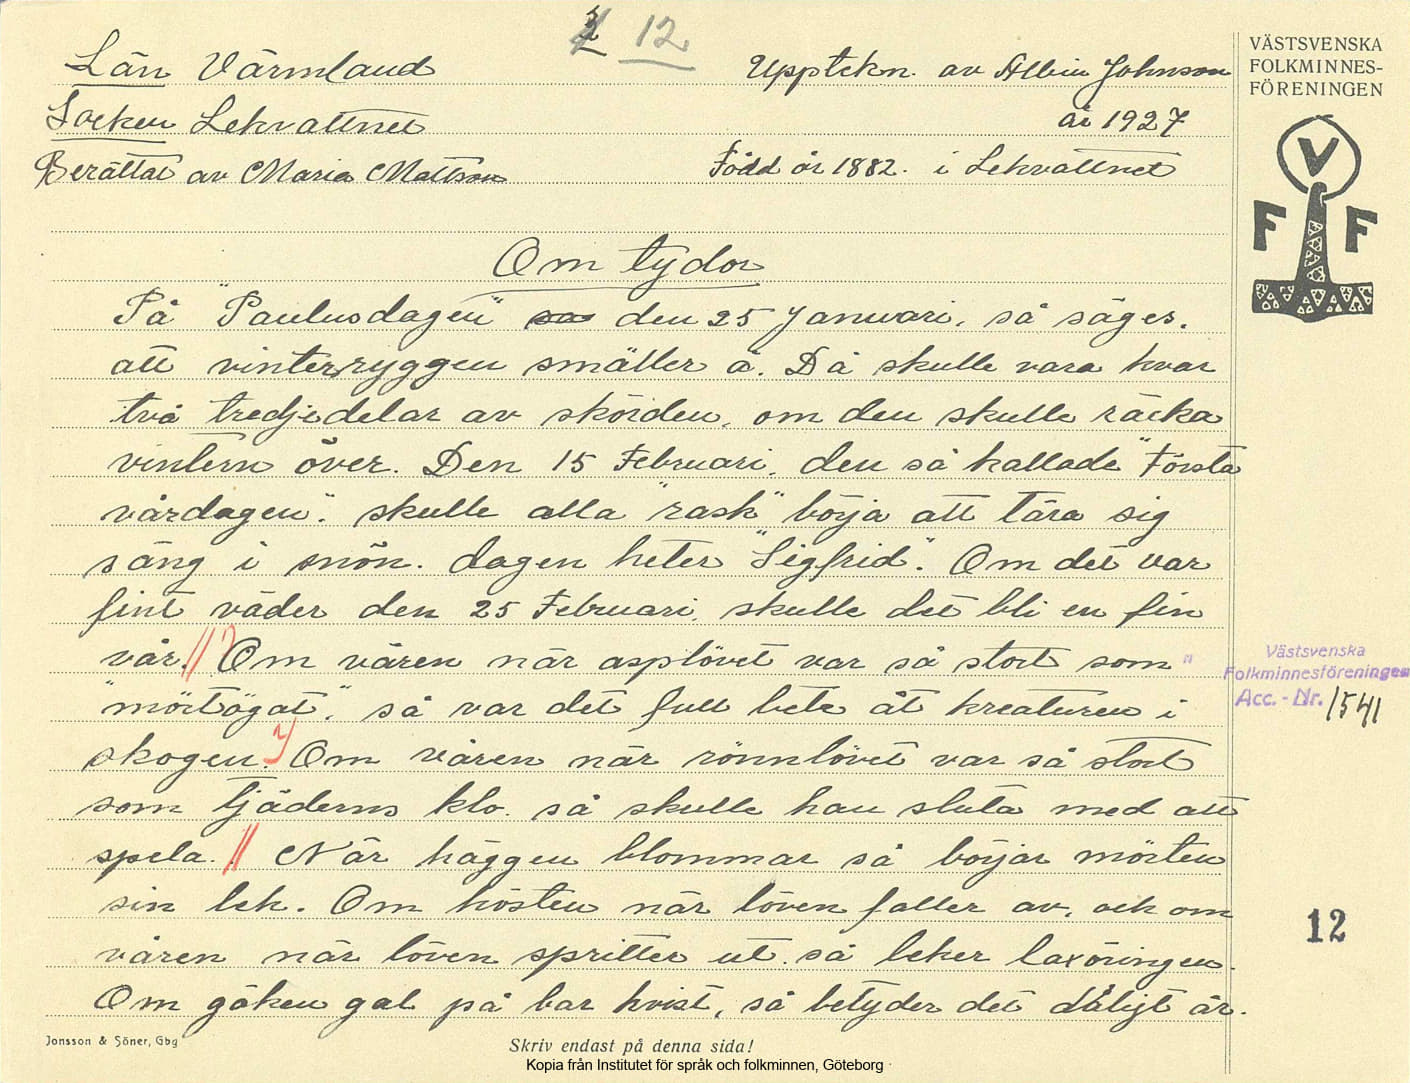 12
Län Värmland
Upptekn. av Albin Johnson
VÄSTSVENSKA
FOLKMINNES-
FÖRENINGEN
Socken Lekvattnet
år 1927
Berättat av Maria Mattson
Född år 1882. i Lekvattnet
V
F F
Om tydor
På "Paulusdagen" den 25 Januari, så säges,
att vinterryggen smäller å. Då skulle vara kvar
två tredjedelar av skörden, om den skulle räcka
vintern över. Den 15 Februari, den så kallade "Första
vårdagen", skulle alla "rask" börja att tära sig
säng i snön. dagen heter "Sigfrid". Om det var
fint väder den 25 Februari, skulle det bli en fin
vår. Om våren när asplövet var så stort som
"mörtögat", så var det full bete åt kreaturen i
skogen. Om våren när rönnlövet var så stort
som tjäderns klo. så skulle han sluta med att
spela. När häggen blommar så börjar mörten
sin lek. Om hösten när löven faller av, och om
våren när löven spritter ut. så leker laxöringen.
Om göken gal på bar kvist, så betyder det dåligt år.
Västsvenska
Folkminnesföreningen
Acc.-Nr. 1541
12
Jonsson & Söner, Gbg
Skriv endast på denna sida!
Kopia från Institutet för språk och folkminnen, Göteborg